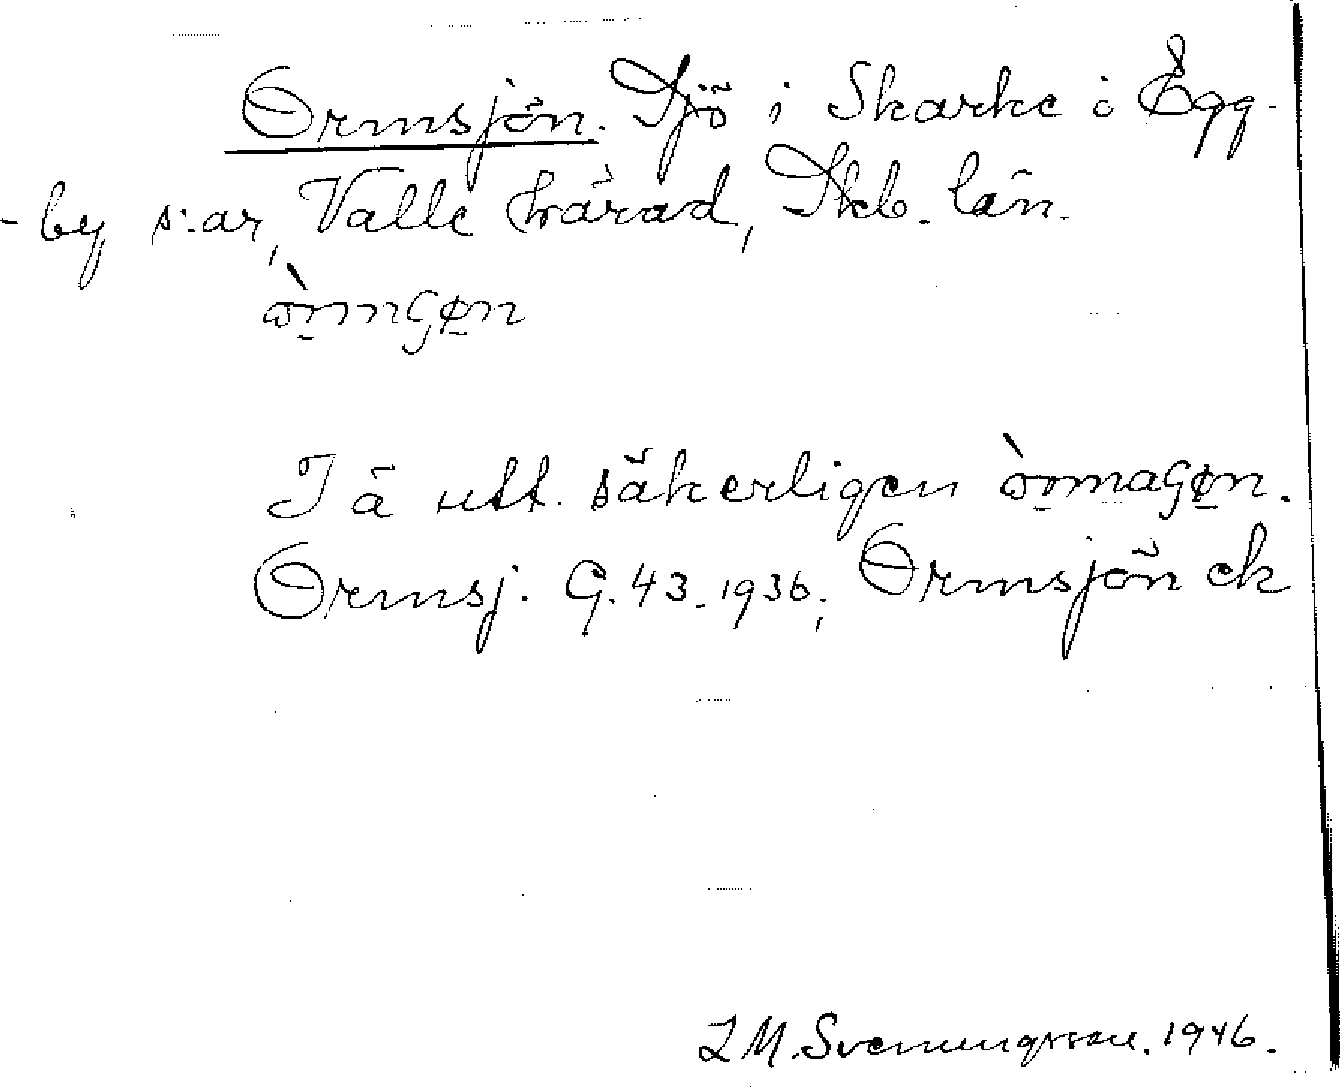 Ormsjön. Sjö i Skarke i Egg-
-by s:ar, Valle härad, Skb. län.
òrmsjøn
I ä utt. säkerligen òrmasjøn.
Ormsj. G. 43. 1936; Ormsjön ek
L M. Svenungsson. 1946.